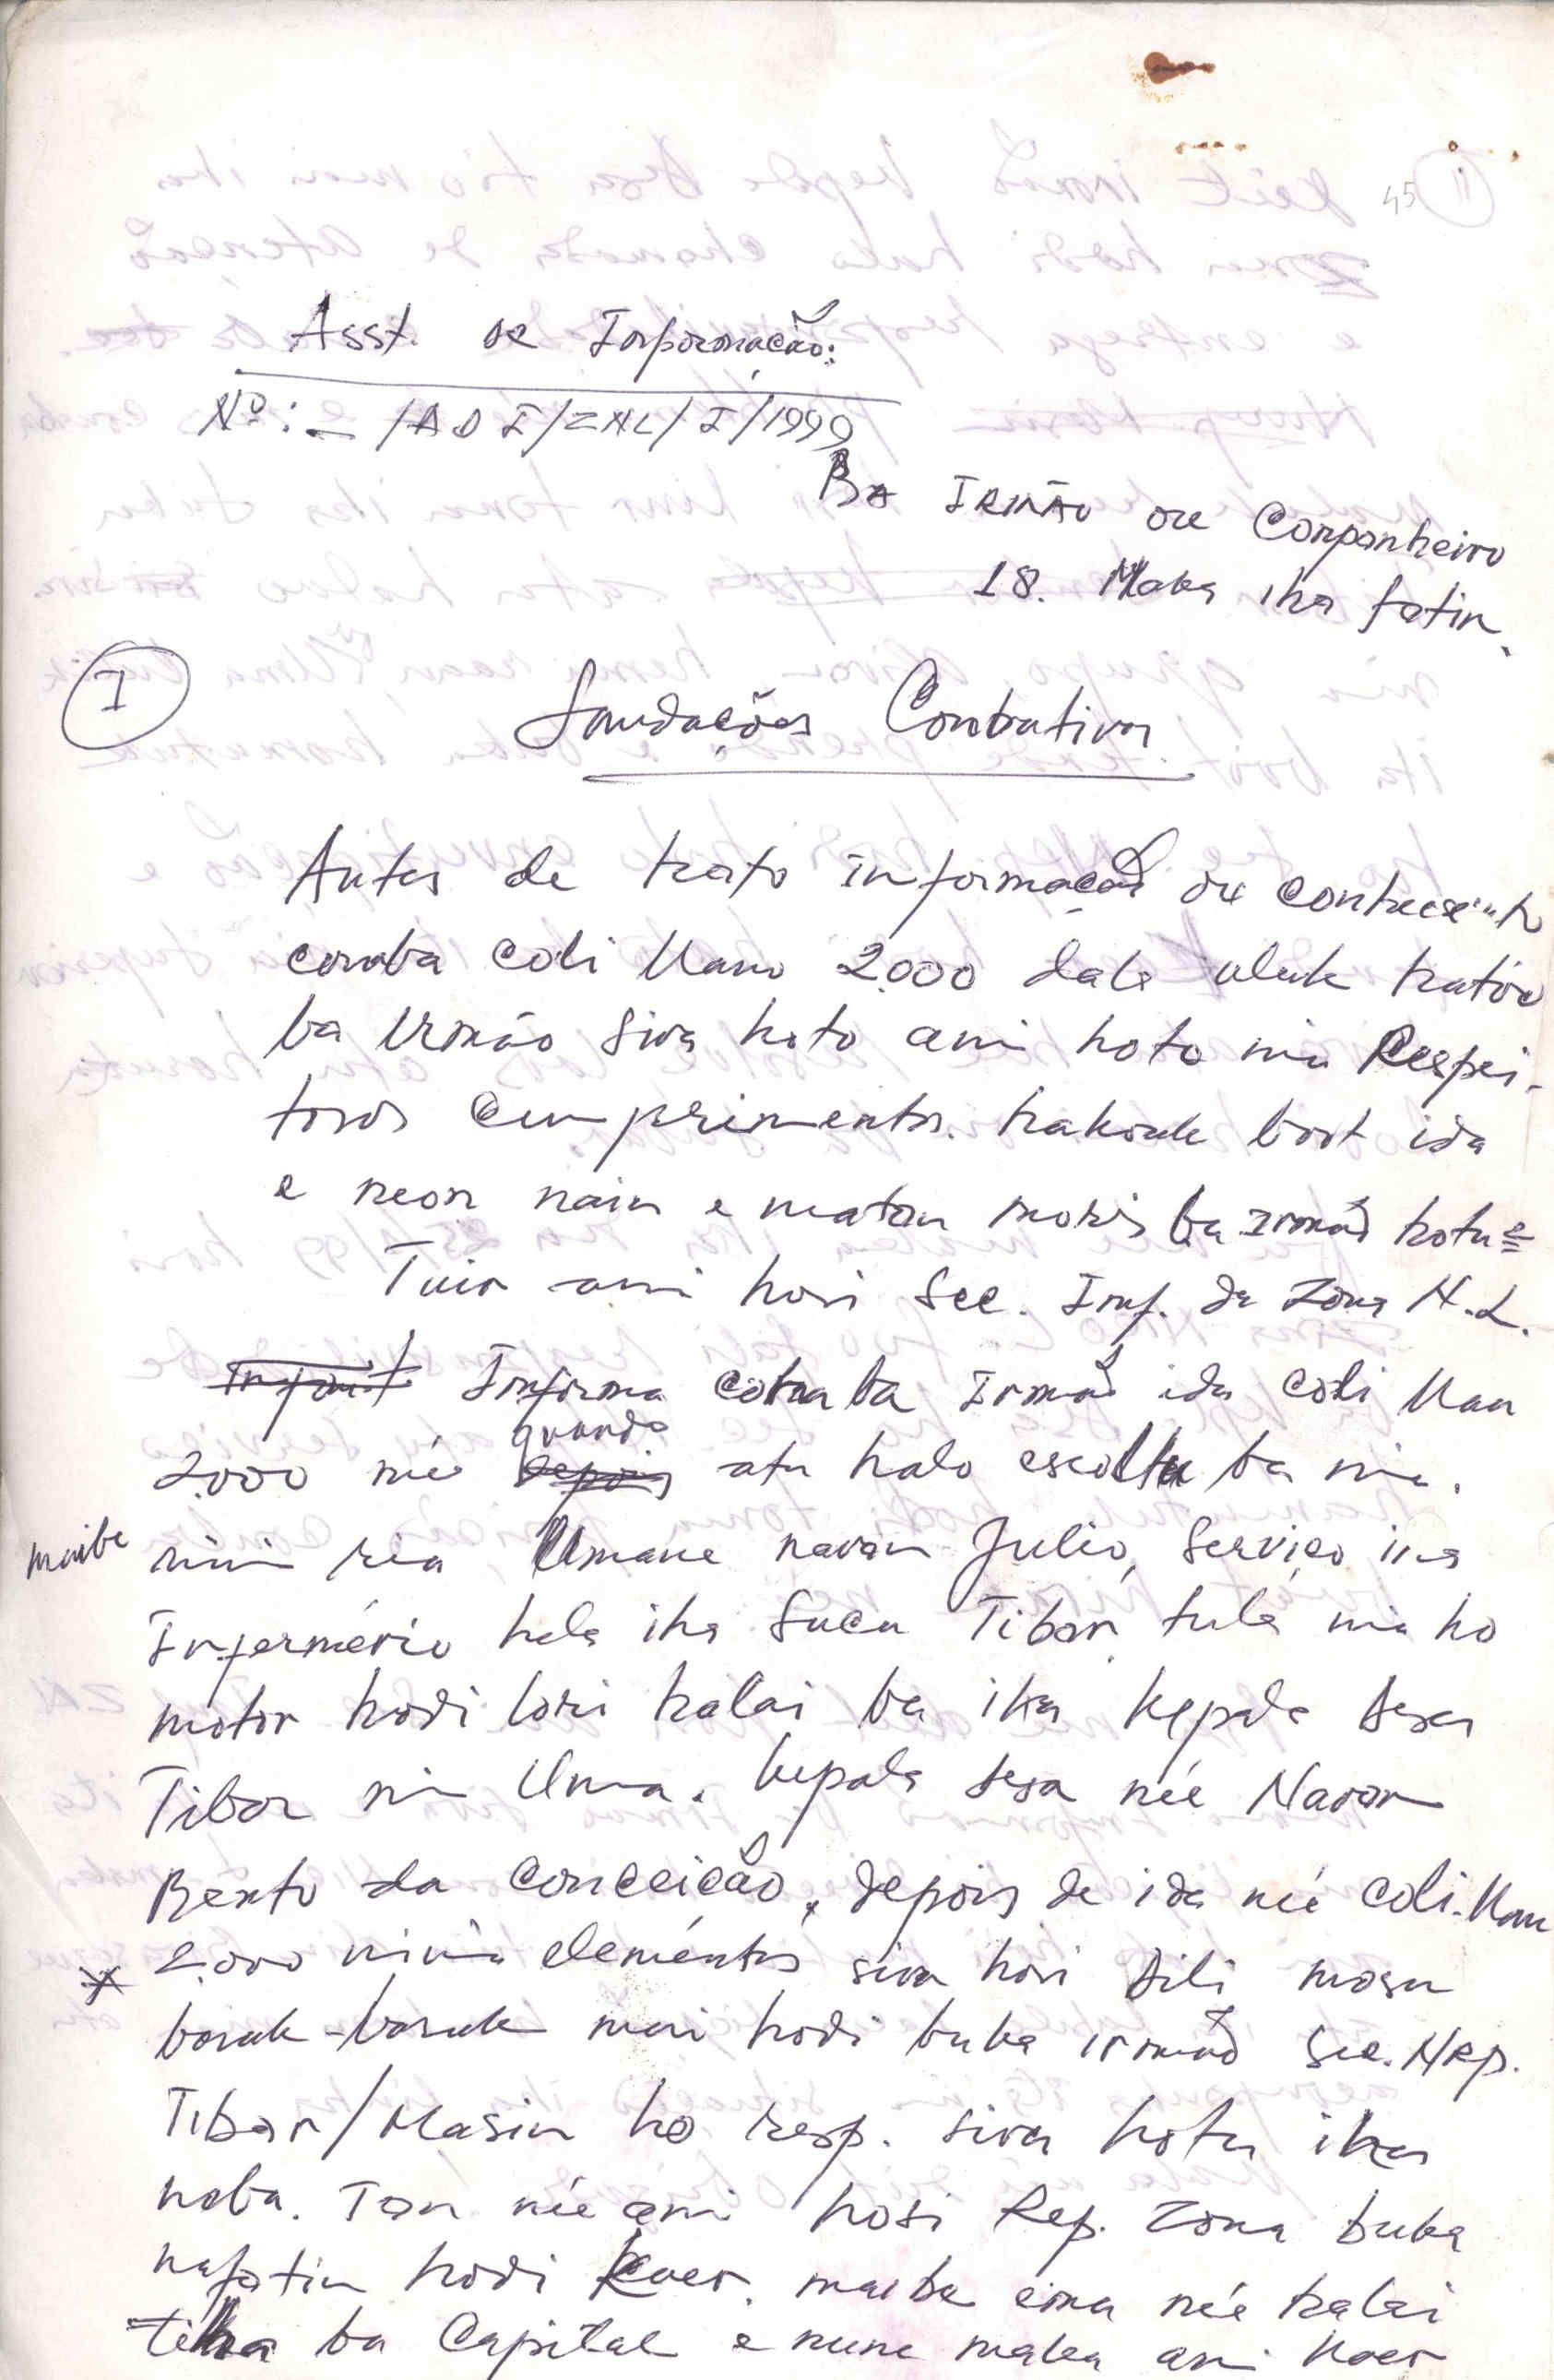 45
Asst. de Informação:
Nº: - /ADI/ZNL/I/1999
Ba Irmão de Companheiro
18. Maka iha fatin.
I
Saudações Combativas
Antes de trato informação de
conaba Coli Mau 2.000 dala uluk hatóo
ba Irmão Sira hoto ami hoto nia Respei-
tosos Cumprimentos. hakouk boot ida
e neon nain e matan moris ba irmão hotu =
Tuir ami hosi Sec. Inf. da Zona N.L.
Informa conaba Irmão ida Coli Mau
2.000 née quando depois atu halo escolta ba nia.
maibe nini ria Umane naran Julio, Serviço iha
Infermério hela iha Sucu Tibar, tula nia ho
motor hodi lori halai ba iha Kepala Desa
Tibar nia Uma. Kepala desa née Naran
Bento da Conceição, depois de ida née Coli-Mau
* 2.000 ninia elementos sira hosi Dili mosu
barak-barak mai hodi buka irmão Sec. NRp.
Tibar/Masin ho resp. sira hotu iha
neba. Tan née ami hosi Rep. Zona buka
nafatin hodi Kaer, maibe ema née halai
tiha ba Capital e nune maka ami Kaer